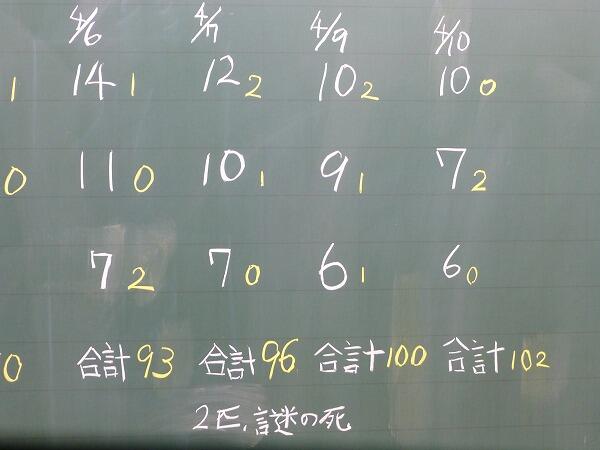 4/6 4/7 4/9 4/10
1 14 1 12 2 10 2 10 0
0 11 0 10 1 9 1 7 2
7 2 7 0 6 1 6 0
0 合計93 合計96 合計100 合計102
2匹、謎の死